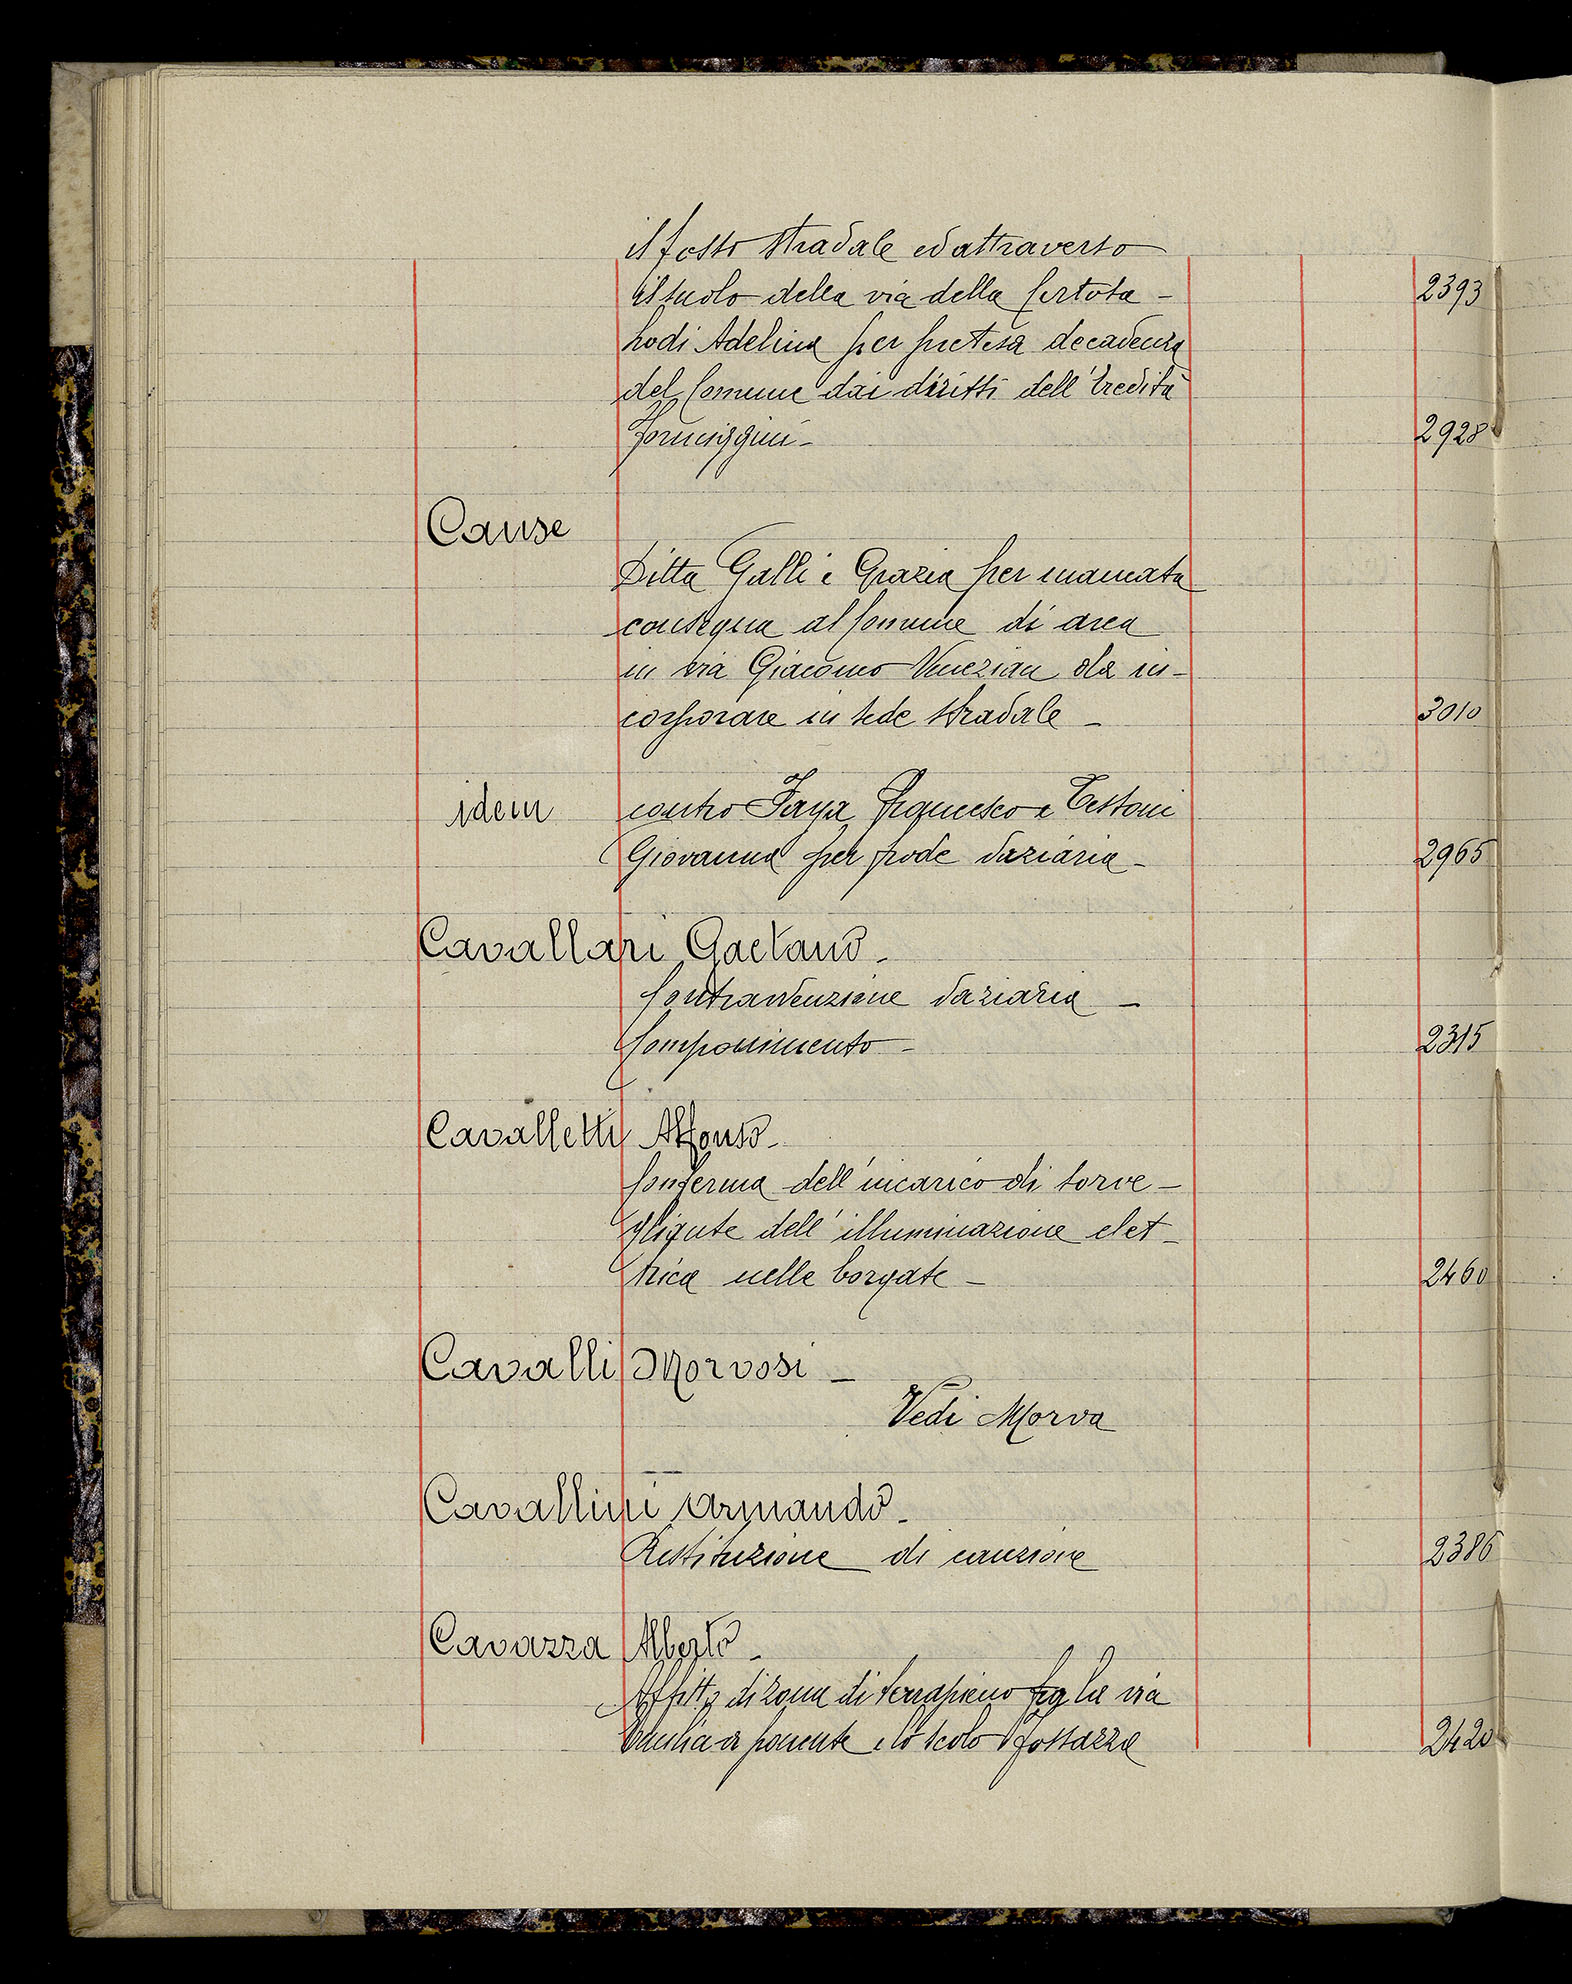 il fosso stradale ed attraverso
il suolo della via della Certosa - 2393
Lodi Adelina per pretesa decadenza
del Comune dai diritti dell'Eredità
Formiggini - 2928
Cause
Ditta Galli e Grazia per mancata
consegna al Comune di area
in via Giacomo Venezian da in-
corporare in sede stradale - 3010
idem contro Francesco e Testoni
Giovanna per frode daziaria - 2965
Cavallari Gaetano -
Contravvenzione daziaria -
Componimento - 2315
Cavalletti Alfonso -
Conferma dell'incarico di sorve-
gliante dell'illuminazione elet-
trica nelle borgate - 2460
Cavalli Morvosi -
Vedi Morva
Cavallini Armando -
Restituzione di cauzione 2386
Cavazza Alberto -
Affitto di zona di terrapieno fra la via
Emilia a ponente e lo scolo Fossazza 2420